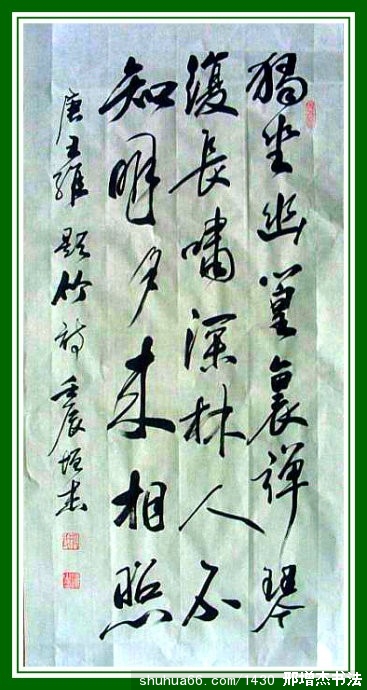 獨坐幽篁裏彈琴
復長嘯深林人不
知明月来相照
唐王維題竹詩壬辰增杰
shuhua66.com/1430 邢增杰书法